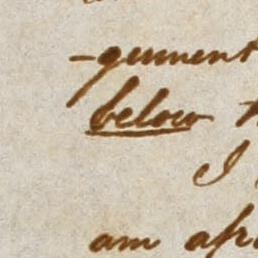 -gument
below
I
am